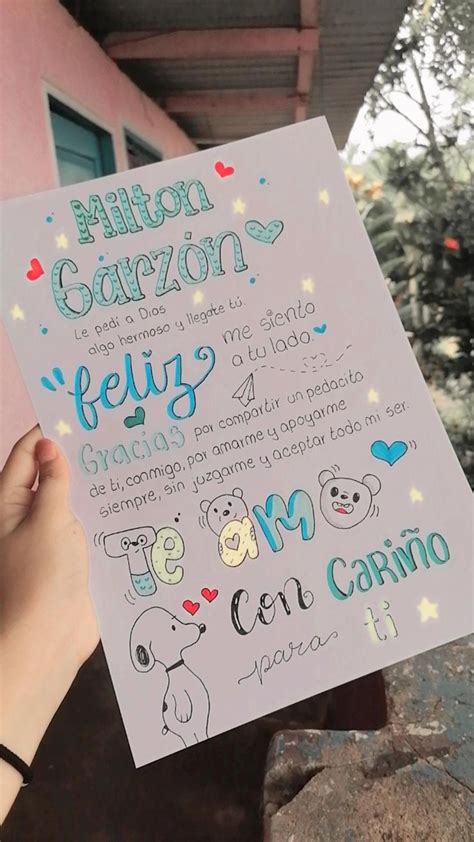 Milton
Garzón
Le pedí a Dios
algo hermoso y llegate tú.
feliz me siento
a tu lado.
Gracias por compartir un pedacito
de ti, conmigo, por amarme y apoyarme
siempre, sin juzgarme y aceptar todo mi ser.
Te amo
con Cariño
para ti